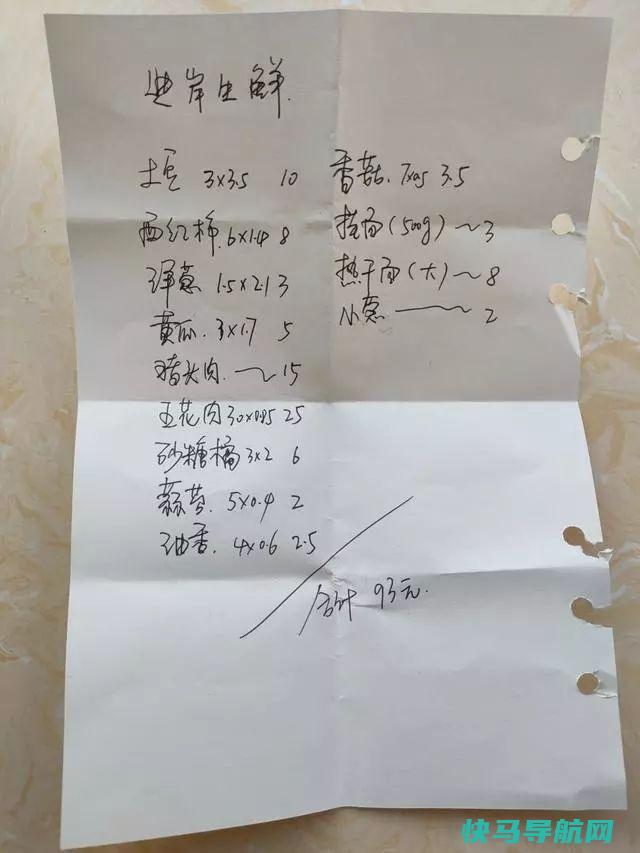 岸生鲜.
土豆 3x3.5 10
西红柿. 6x1.4 8
洋葱 1.5x2.1 3
黄瓜. 3x1.7 5
猪头肉. ～15
五花肉 30x0.85 25
砂糖橘 3x2 6
蒜苔. 5x0.4 2
油香. 4x0.6 2.5
香菇. 7x0.5 3.5
挂面(500g) ～3
热干面(大) ～8
小葱 —— 2
合计 93元.
快马导航网